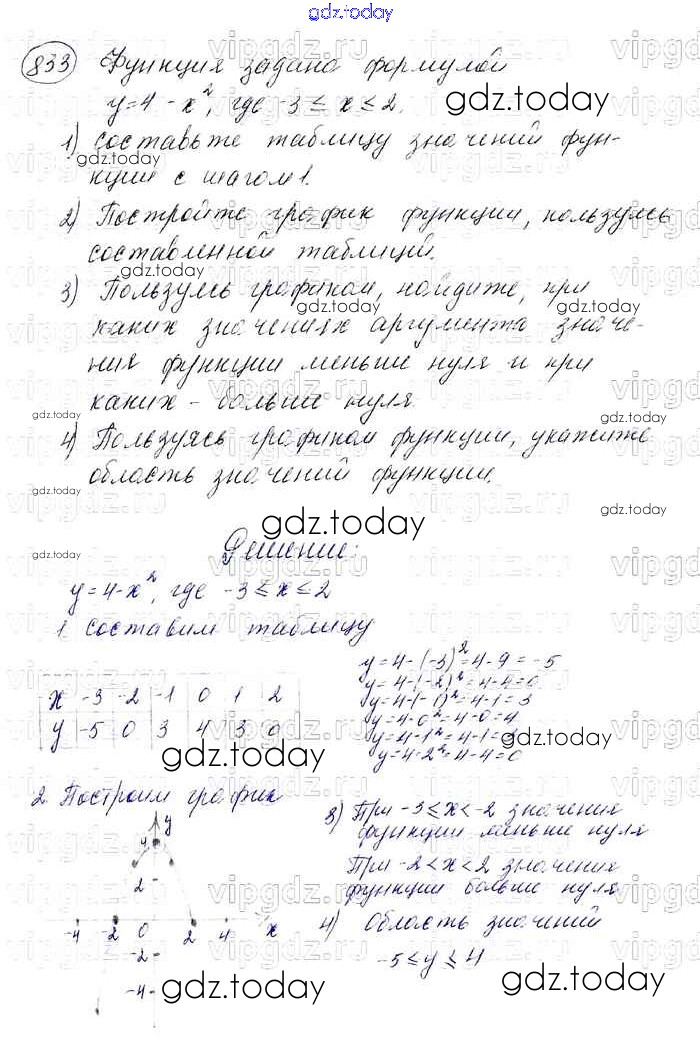 gdz.today
833 Функция задана формулой
y=4-x², где -3≤x≤2.
1) составьте таблицу значений фун-
кции с шагом 1.
2) Постройте график функции, пользуясь
составленной таблицей.
3) Пользуясь графиком, найдите, при
каких значениях аргумента значе-
ния функции меньше нуля и при
каких - больше нуля.
4) Пользуясь графиком функции, укажите
область значений функции.
Решение:
y=4-x², где -3≤x≤2
1. составим таблицу
x -3 -2 -1 0 1 2
y -5 0 3 4 3 0
y=4-(-3)²=4-9=-5
y=4-(-2)²=4-4=0
y=4-(-1)²=4-1=3
y=4-0²=4-0=4
y=4-1²=4-1=3
y=4-2²=4-4=0
2 Построим график
y
4
2
-4 -2 0 2 4 x
-2
-4
3) При -3≤x<-2 значения
функции меньше нуля
При -2<x<2 значения
функции больше нуля
4) Область значений
-5≤y≤4
gdz.today
vipgdz.ru